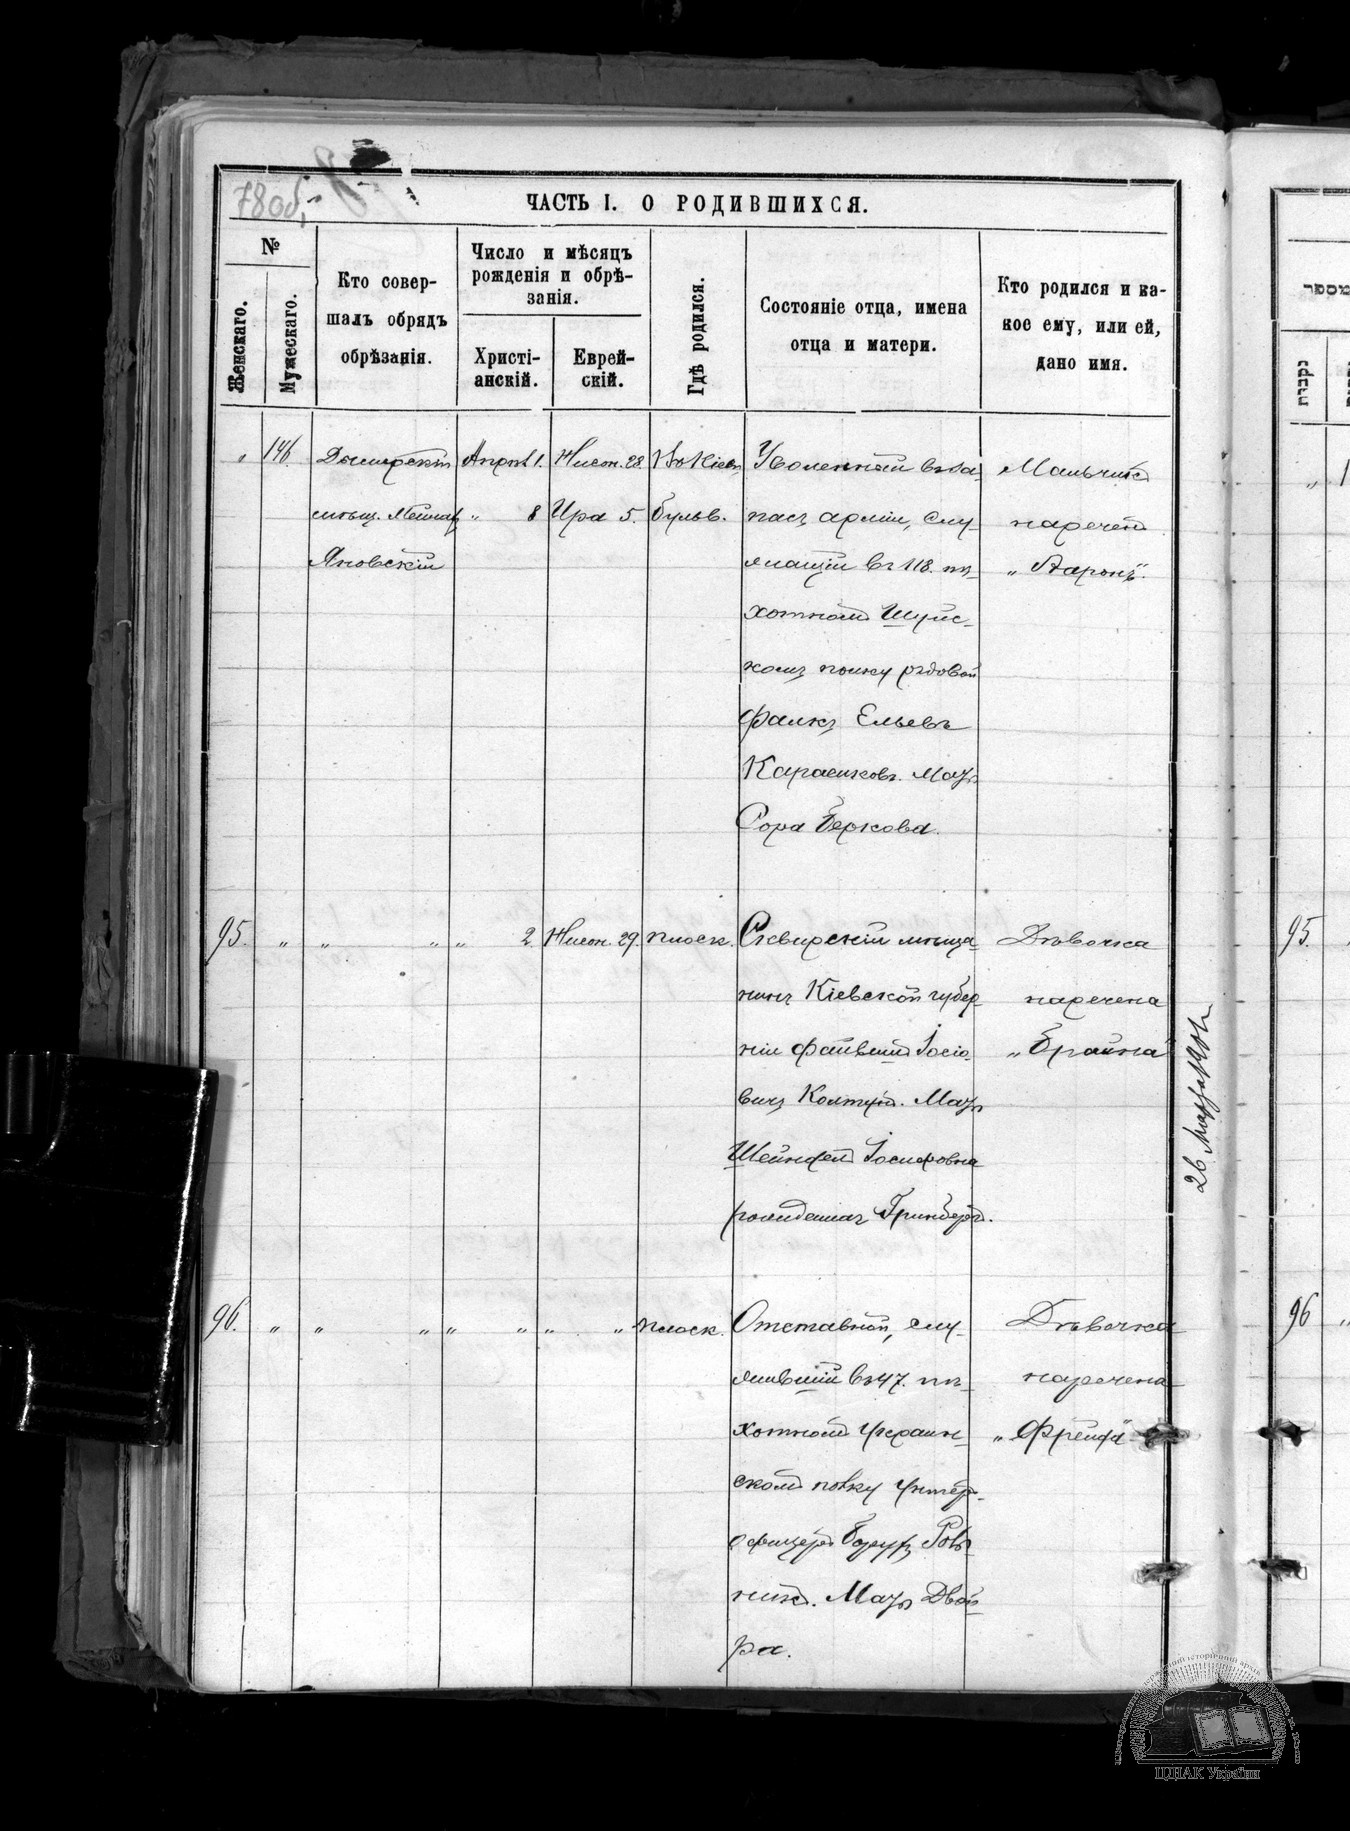 780б.
ЧАСТЬ I. О РОДИВШИХСЯ.
№
Женскаго.
Мужескаго.
Кто совер-
шалъ обрядъ
обрѣзанія.
Число и мѣсяцъ
рожденія и обрѣ-
занія.
Христі-
анскій.
Еврей-
скій.
Гдѣ родился.
Состояніе отца, имена
отца и матери.
Кто родился и ка-
кое ему, или ей,
дано имя.
„ 146.
мѣщ.
Яновскій
Апрѣл 1.
„ 8
Нисон. 28.
Ира 5.
Въ Кіевѣ
бульв.
Уволенный въ за-
пасъ арміи, слу-
жащій въ 118. пѣ-
хотномъ Шуйс-
комъ полку рядовой
Фалкъ Ельевъ
Карасиковъ. Мать
Сора Беркова.
Мальчикъ
нареченъ
„Ааронъ".
95. „ „ „ „ 2
Нисон. 29.
плоск.
Сквирскій мѣща-
нинъ Кіевской губер-
ніи Файвишъ Іосіо-
вичъ Колтунъ. Мать
Шейнфелъ Іосифовна
рожденная Гринбергъ.
Дѣвочка
наречена
„Брайна"
96. „ „ „ „ „ „ „
плоск.
Отставной, слу-
жившій въ 47. пѣ-
хотномъ Украин-
скомъ полку унтеръ-
офицеръ Борухъ Роѣ-
никъ. Мать Двой-
ра.
Дѣвочка
наречена
„Фрейда"
26
מספר
נקבות
95.
96
ЦДІАК України